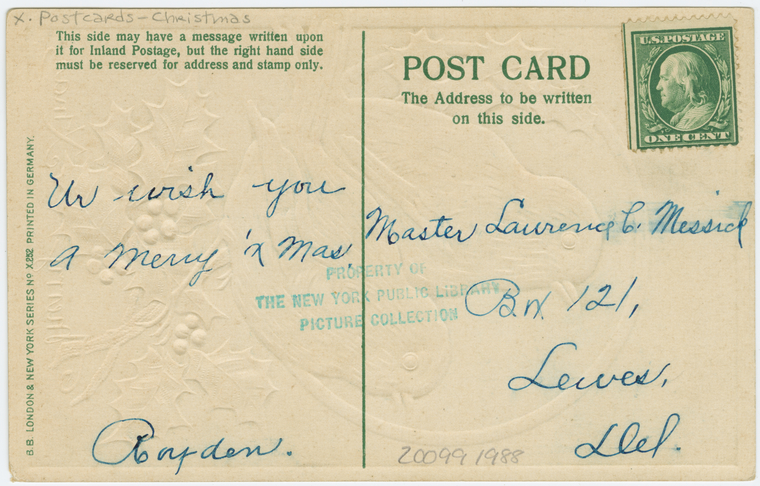 x. Postcards-Christmas
This side may have a message written upon
it for Inland Postage, but the right hand side
must be reserved for address and stamp only.
POST CARD
The Address to be written
on this side.
U.S. POSTAGE
ONE CENT
B.B. LONDON & NEW YORK SERIES Nº X.252 PRINTED IN GERMANY.
We wish you
A Merry 'X Mas,
Roydon.
Master Lawrence C. Messick
Box 121,
Lewes,
Del.
PROPERTY OF
THE NEW YORK PUBLIC LIBRARY
PICTURE COLLECTION
Z0099 1988